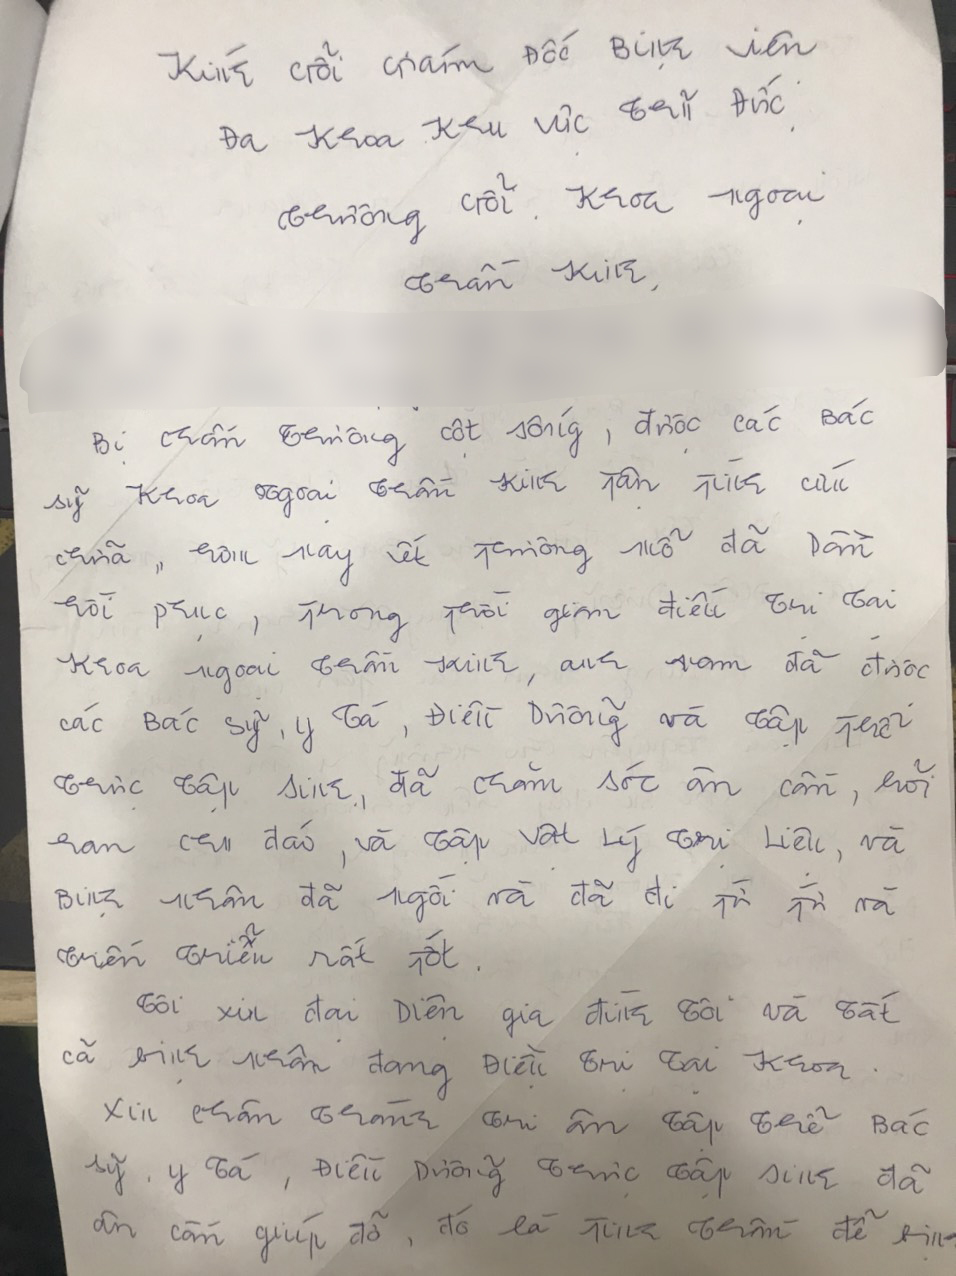 Kính gởi Giám Đốc Bệnh viện
Đa Khoa Khu vực Thủ Đức,
Thường gởi. Khoa ngoại
thần kinh,
Bị chấn thương cột sống, được các Bác
sỹ Khoa ngoại thần kinh tận tình cứu
chữa, hôm nay vết thương mổ đã Dần
hồi phục, trong thời gian điều trị tại
Khoa ngoại thần kinh, anh nam đã được
các Bác sỹ, y tá, Điều Dưỡng và tập thể
thực tập sinh, đã chăm sóc ân cần, hỏi
han chu đáo, và tập vật Lý trị Liệu, và
Bệnh nhân đã ngồi và đã đi từ từ và
tiến triển rất tốt.
Tôi xin đại Diện gia đình tôi và tất
cả bệnh nhân đang Điều trị tại Khoa.
Xin chân thành tri ân tập thể Bác
sỹ, y tá, Điều Dưỡng thực tập sinh đã
ân cần giúp đỡ, đó là tinh thần để